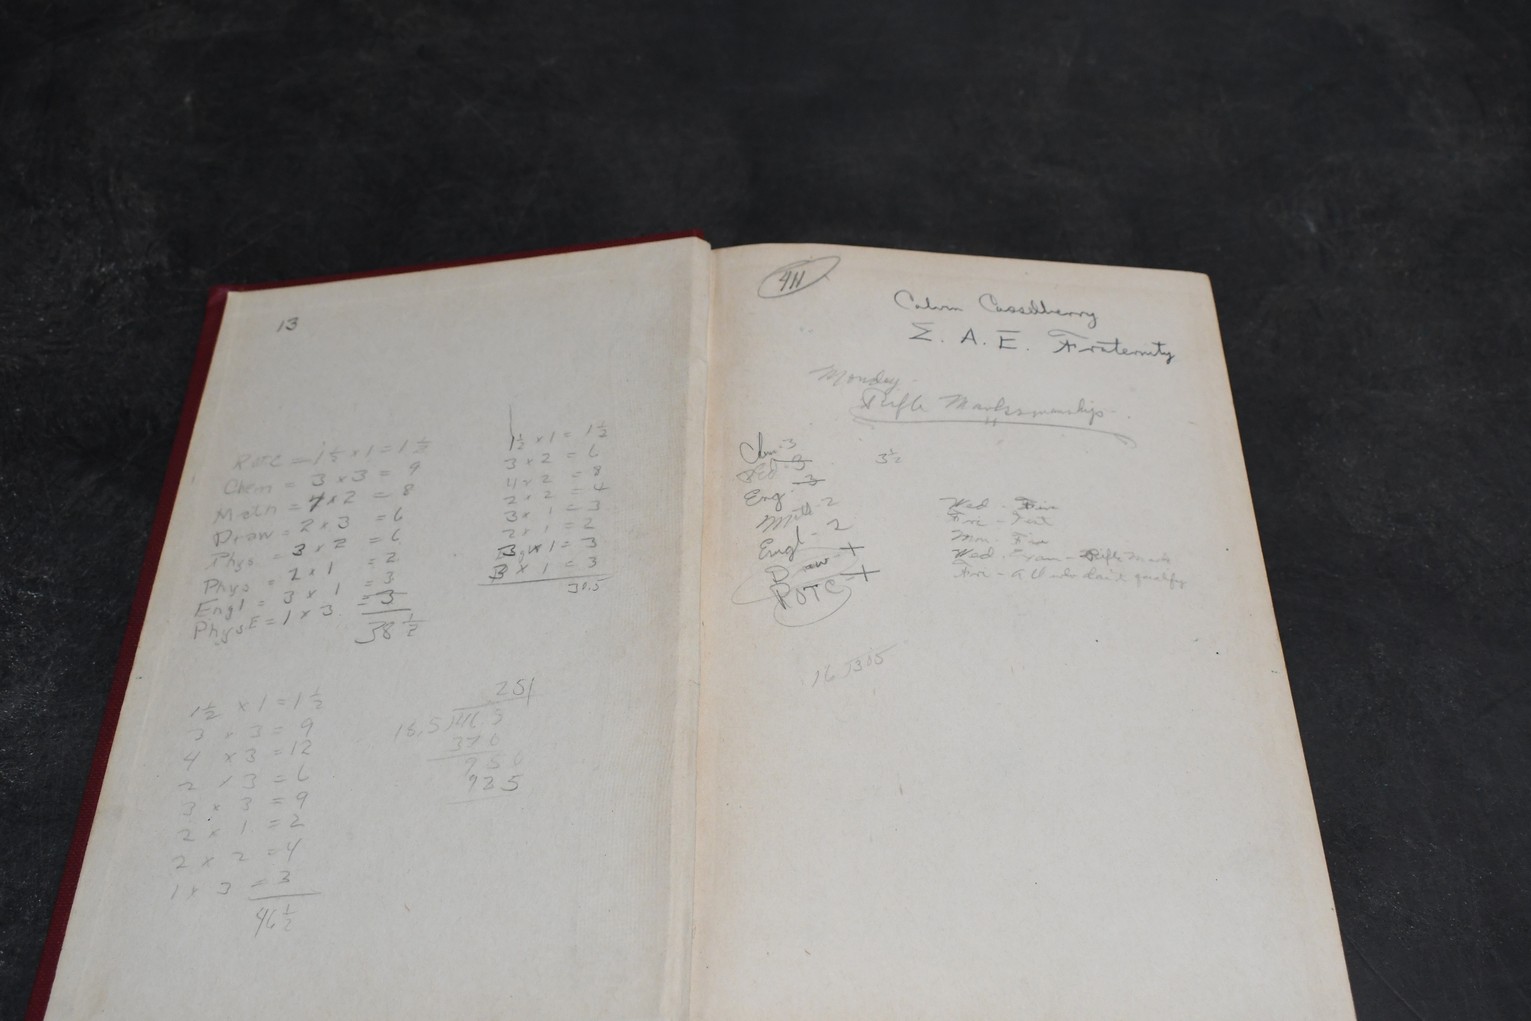 13
ROTC = 1½ × 1 = 1½
Chem = 3 × 3 = 9
Math = 4 × 2 = 8
Draw = 2 × 3 = 6
Phys = 3 × 2 = 6
Phys = 2 × 1 = 2
Engl = 3 × 1 = 3
Phys E = 1 × 3 = 3
38½
1½ × 1 = 1½
3 × 2 = 6
4 × 2 = 8
2 × 2 = 4
3 × 1 = 3
2 × 1 = 2
3 × 1 = 3
3 × 1 = 3
30.5
1½ × 1 = 1½
3 × 3 = 9
4 × 3 = 12
2 × 3 = 6
3 × 3 = 9
2 × 1 = 2
2 × 2 = 4
1 × 3 = 3
46½
251
18.5)465
370
950
925
4H
Calvin Casselberry
Σ. A. E. Fraternity
Monday -
Rifle Marksmanship
Chem 3
3½
Eng 3
Math - 2
Engl - 2
Draw - +
ROTC - +
Wed - Fire
Fri - Test
Mon - Fire
Wed - Exam - Rifle Marks
Fri - All who don't qualify
16)305